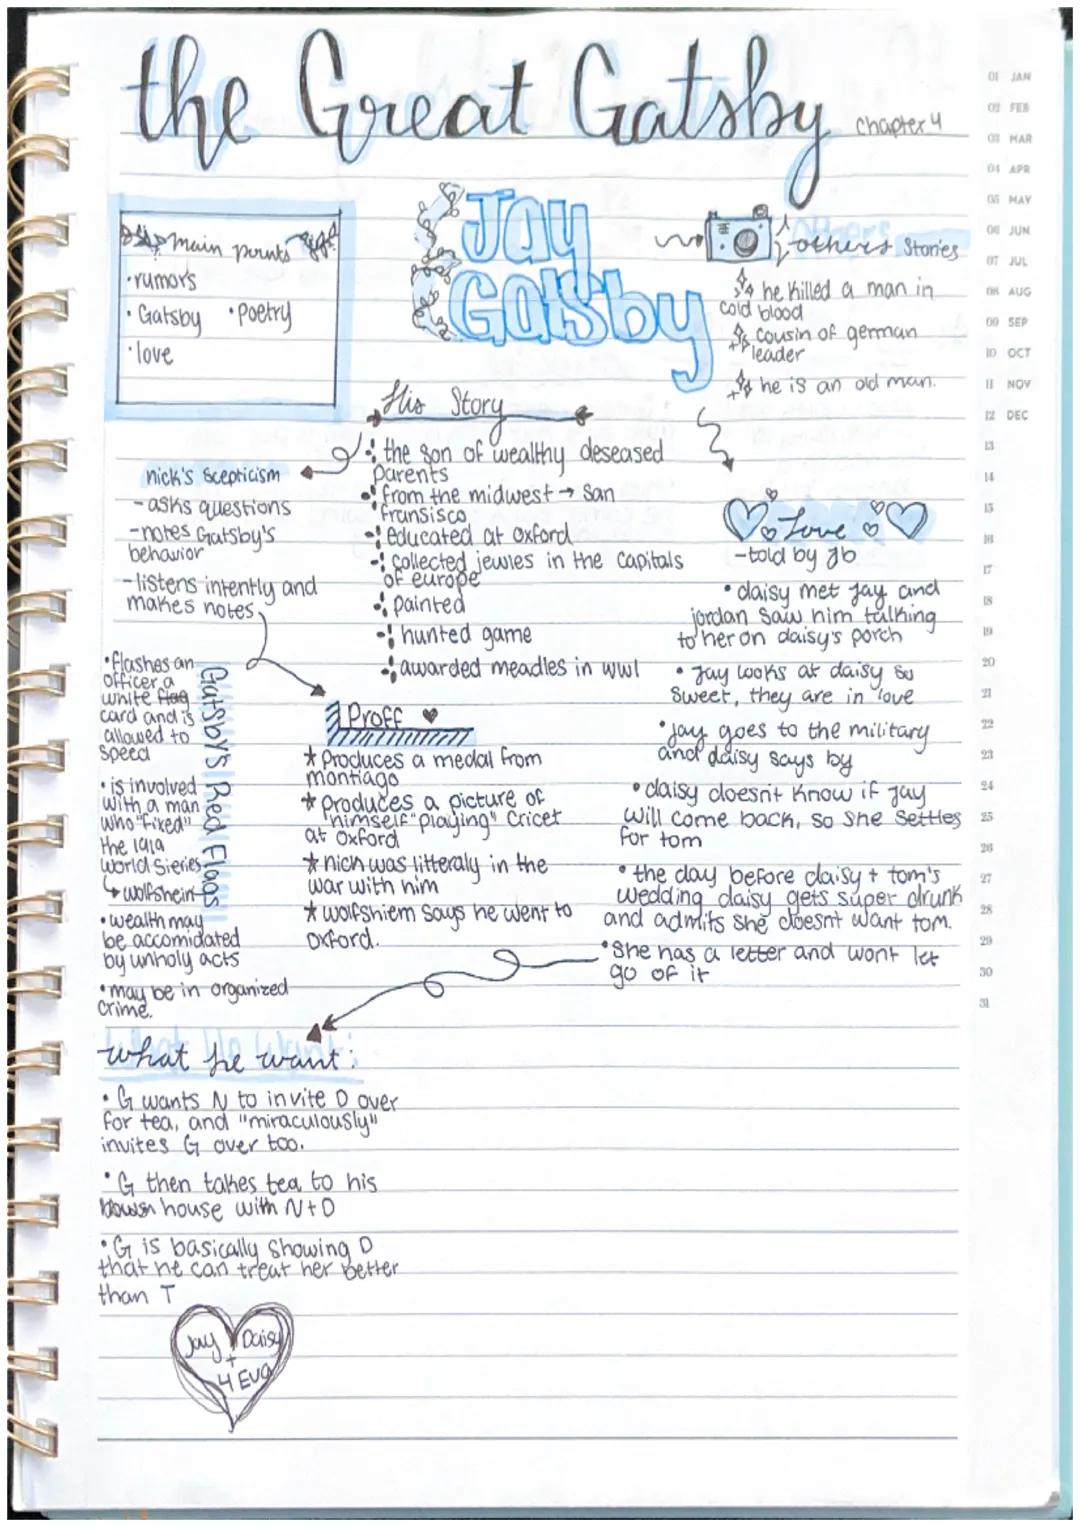 the Great Gatsby
chapter 4
01 JAN
02 FEB
03 MAR
04 APR
05 MAY
06 JUN
07 JUL
08 AUG
09 SEP
10 OCT
11 NOV
12 DEC
13
14
15
16
17
18
19
20
21
22
23
24
25
26
27
28
29
30
31
Main points
·rumors
·Gatsby ·Poetry
·love
Jay
Gatsby
others Stories
he killed a man in
cold blood
cousin of german
leader
he is an old man.
His Story
the son of wealthy deseased
parents
from the midwest → San
fransisco
educated at Oxford
collected jewles in the capitals
of europe
painted
hunted game
awarded meadles in wwI
nick's Scepticism
- asks questions
-notes Gatsby's
behavior
-listens intently and
makes notes
Gatsby's Red Flags
·flashes an
officer a
white flag
card and is
allowed to
speed
·is involved
with a man
who "fixed"
the 1919
World Sieries
↳wolfshein
·wealth may
be accomidated
by unholy acts
·may be in organized
crime.
Proff ♥
* Produces a medal from
montiago
* Produces a picture of
himself "playing" Cricet
at Oxford
* nich was litteraly in the
war with him
* wolfshiem says he went to
Oxford.
Love
-told by Jb
·daisy met Jay and
jordan saw him talking
to her on daisy's porch
·Jay looks at daisy so
sweet, they are in love
·Jay goes to the military
and daisy says by
·daisy doesn't know if Jay
will come back, so she settles
for tom
·the day before daisy + tom's
wedding daisy gets super drunk
and admits she doesn't want tom.
·She has a letter and wont let
go of it
what he want:
·G wants N to invite D over
for tea, and "miraculously"
invites G over too.
·G then takes tea to his
house with N+D
·G is basically showing D
that he can treat her better
than T
Jay + Daisy
4 Eva